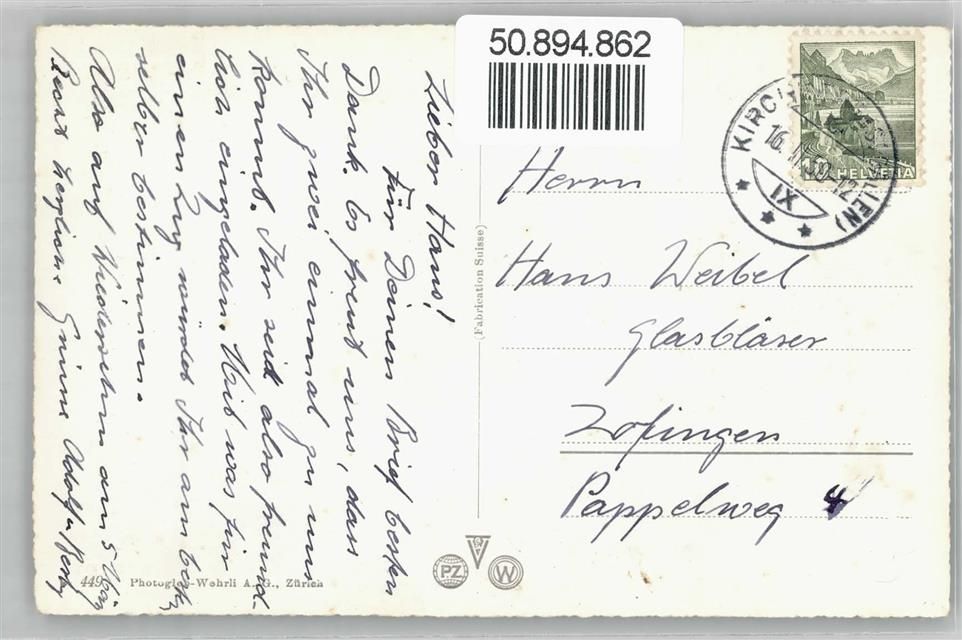 50.894.862
Lieber Hans!
Für Deinen Brief besten
Dank. Es freut uns, dass
Ihr zwei einmal zu uns
kommt. Ihr seid also freund-
lich eingeladen. Mit was für
einem Zug würdet Ihr am besten
selber bestimmen.
Also auf Wiedersehen am 5.
Recht herzliche Grüsse Adolf u.
449 Photoglob-Wehrli A.G., Zürich
(Fabrication Suisse)
PZ
W
KIRCH
16.
IX
10 HELVETIA
Herrn
Hans Weibel
Glasbläser
Zofingen
Pappelweg 4